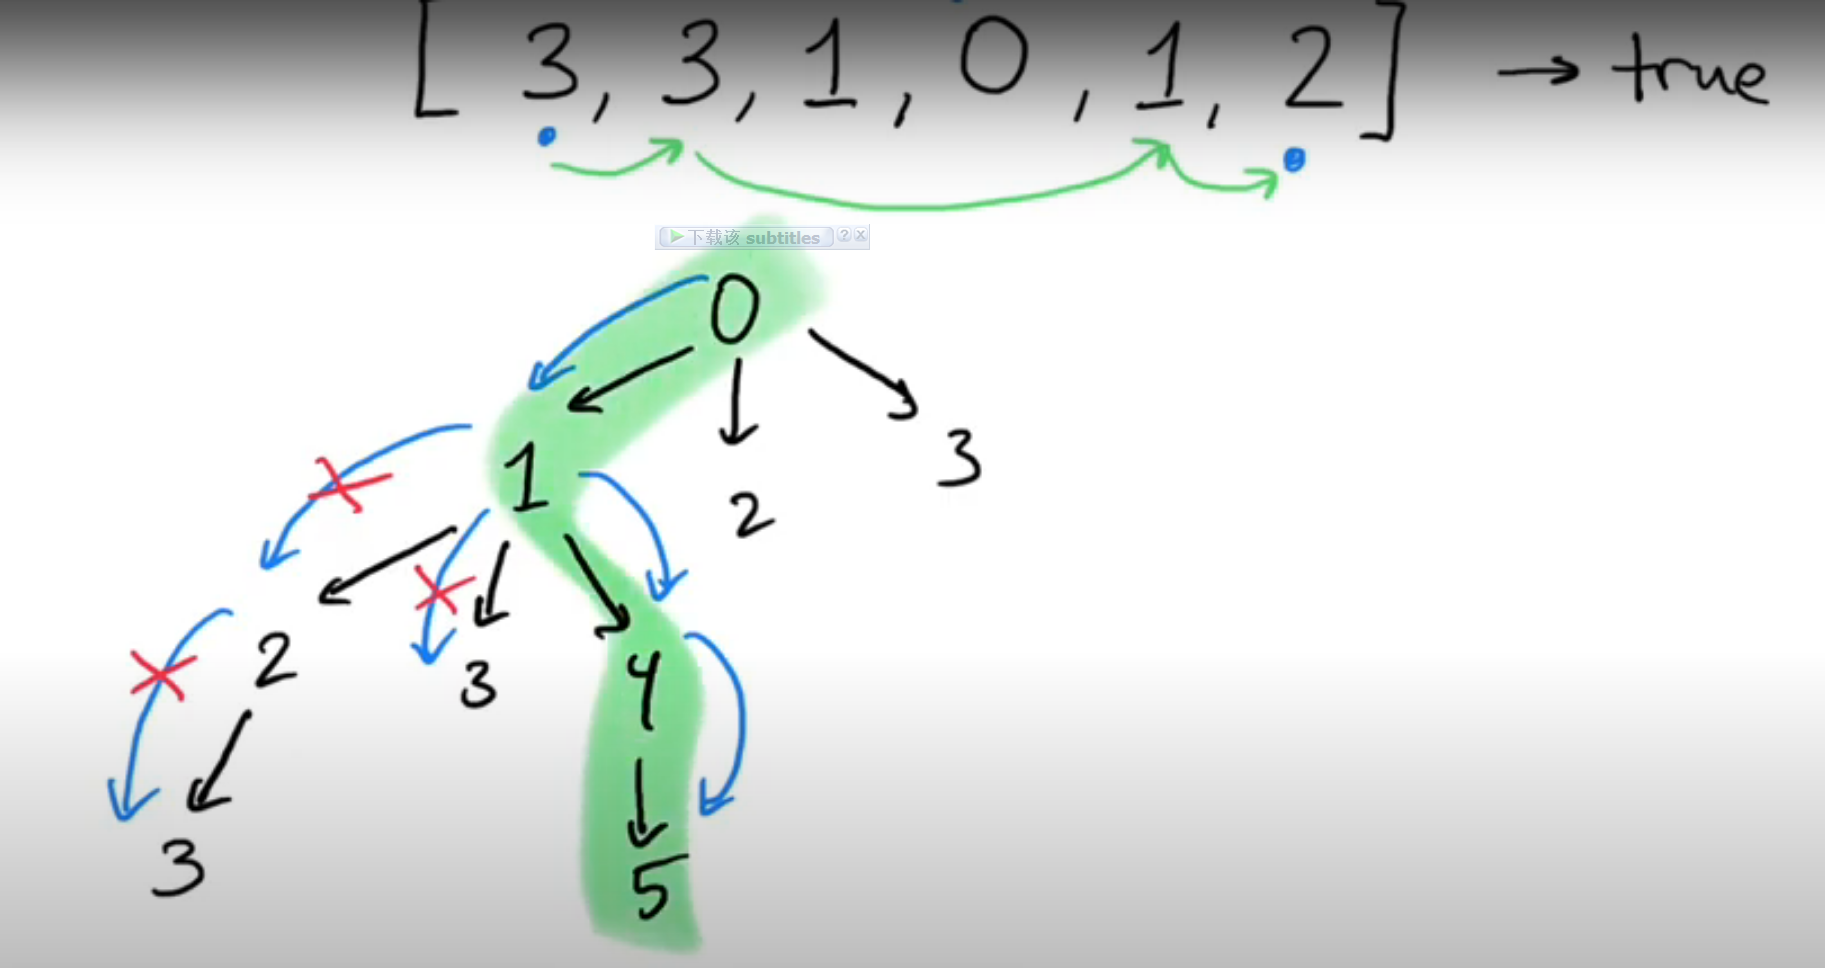 [ 3, 3, 1, 0, 1, 2 ] → true
下载该 subtitles ? x
0
1 2 3
2 3 4
3 5